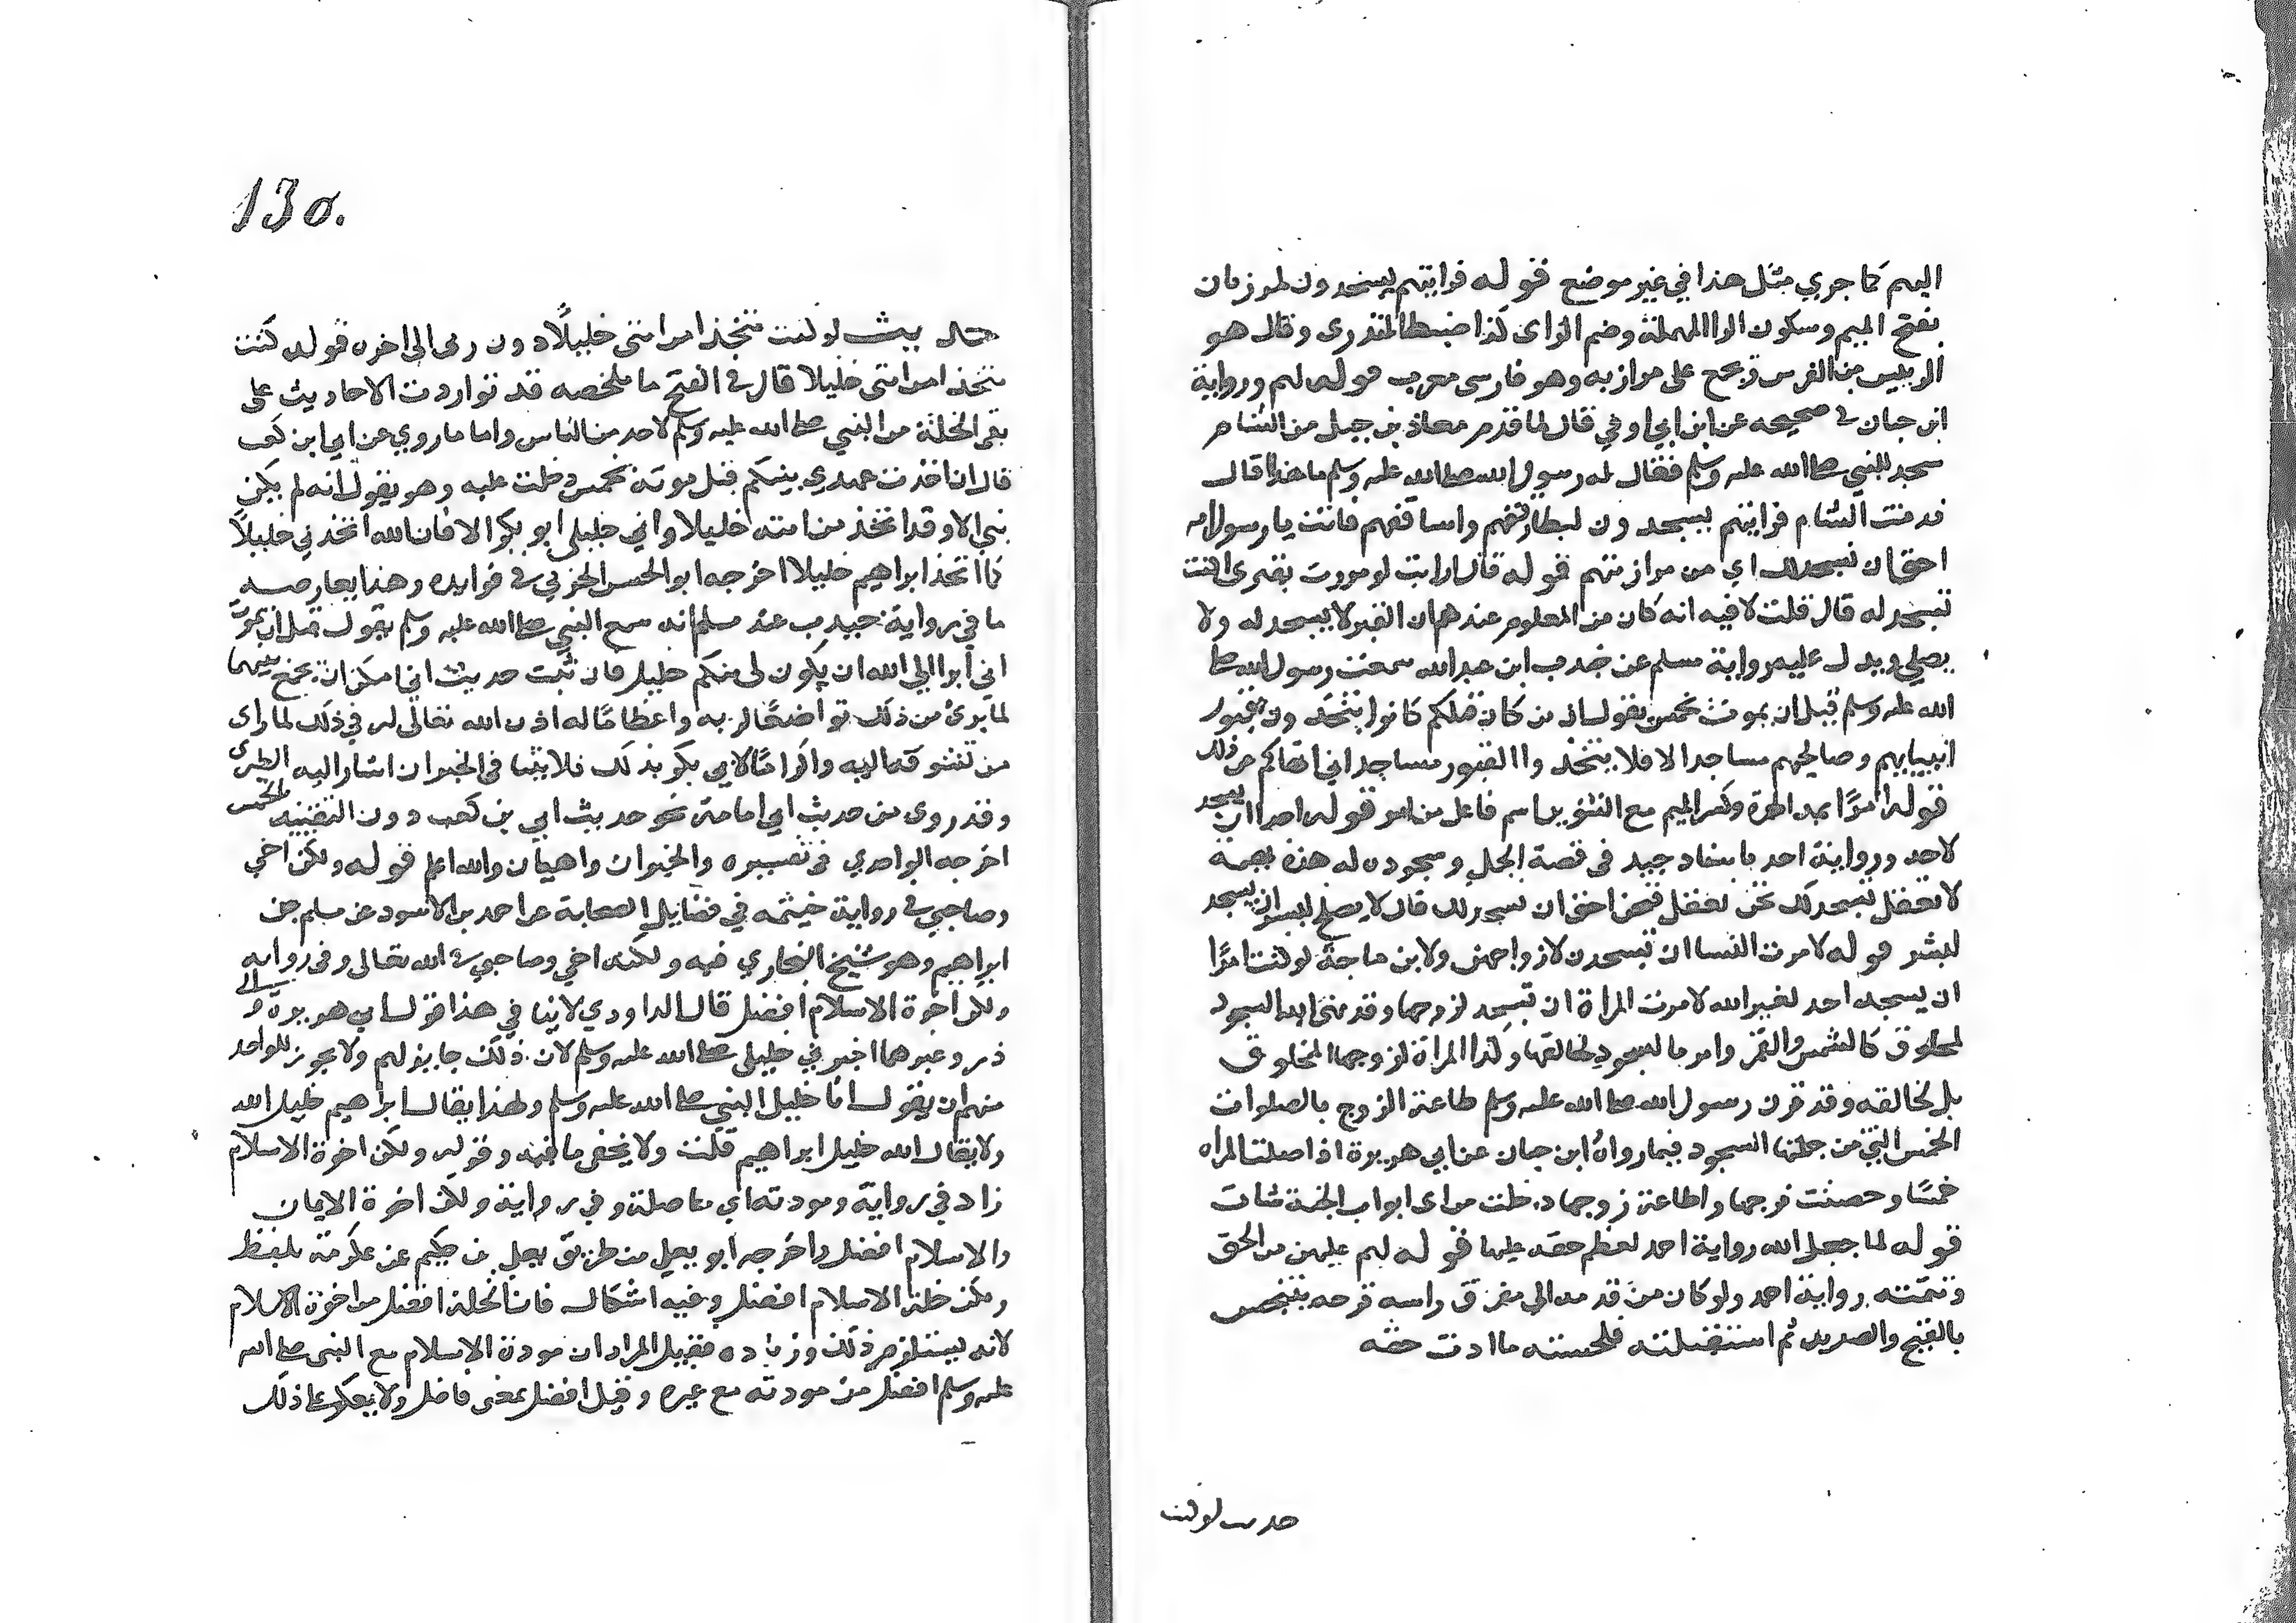 اليهم كما جري مثل هذا في غير موضع قوله فرايتهم يسجدون لمرزبان
بفتح الميم وسكون الرا المهملة وضم الزاى كذا ضبطه المنذرى وقال هو
الرييس من الفرس تجمع على مرازبه وهو فارسى معرب قوله لهم ورواية
ابن حبان في صحيحه عن ابن ابي اوفي قال لما قدم معاذ بن جبل من الشام
سجد للنبي صلى الله عليه وسلم فقال له رسول الله صلى الله عليه وسلم ما هذا قال
قدمت الشام فرايتهم يسجدون لبطارقتهم واساقفهم فانت يا رسول الله
احق ان نسجد لك اي من مرازبتهم قوله قال ارايت لو مررت بقبرى اكنت
تسجد له قال قلت لا فيه انه كان من المعلوم عندهم ان القبر لا يسجد له ولا
يصلي ويدل عليه رواية مسلم عن جندب ابن عبد الله سمعت رسول الله صلى
الله عليه وسلم قبل ان يموت بخمس يقول ان من كان قبلكم كانوا يتخذون قبور
انبيايهم وصالحيهم مساجد الا فلا يتخذوا القبور مساجد اني انهاكم عن ذلك
قوله امرًا بمد الهمزة وكسر الميم مع التنوين اسم فاعل من امر قوله احدا ان يسجد
لاحد ورواية احمد باسناد جيد في قصة الجمل وسجوده له هذه بهيمة
لا تعقل تسجد لك نحن نعقل فنحن احق ان نسجد لك قال لا يصلح لبشر ان يسجد
لبشر قوله لامرت النسا ان تسجدن لازواجهن ولابن ماجة لو كنت امرًا
ان يسجد احد لغير الله لامرت المراة ان تسجد لزوجها وقد نهى الله السجود
لمخلوق كالشمس والقمر وامر بالسجود لخالقها وكذا المراة لزوجها المخلوق
بل لخالقه وقد قرن رسول الله صلى الله عليه وسلم طاعة الزوج بالصلوات
الخمس التي من جملتها السجود فيما رواه ابن حبان عن ابي هريرة اذا صلت المراه
خمسًا وحصنت فرجها واطاعة زوجها دخلت من اى ابواب الجنة شات
قوله لما جعل الله رواية احمد لعظم حقه عليها قوله لهم عليهن من الحق
وتتمته رواية احمد ولو كان من قدمه الى مفرق راسه قرحه تنبجس
بالقيح والصديد ثم استقبلته فلحسته ما ادت حقه
حديث لو كنت
130.
حديث لو كنت متخذا من امتى خليلًا دون ربى الى اخره قوله كنت
متخذا من امتى خليلا قال في الفتح ما ملخصه قد تواردت الاحاديث على
نفى الخلة من النبي صلى الله عليه وسلم لاحد من الناس واما ما روي عن ابي ابن كعب
قال ان اخذت عهدي بنبيكم قبل موته بخمس دخلت عليه وهو يقول انه لم يكن
نبي الا وقد اتخذ من امته خليلا واني خليلى ابو بكر الا فان الله اتخذني خليلًا
كما اتخذ ابراهيم خليلا اخرجه ابو الحسن الحربي في فوايده وهذا يعارضه
ما في رواية جندب عند مسلم انه سمع النبي صلى الله عليه وسلم يقول قبل ان يموت
اني ابرا الى الله ان يكون لى منكم خليل فان ثبت حديث ابي امكن ان تجمع بينهما
لما برئ من ذلك تواضعًا لربه واعظامًا له اذن الله تعالى له في ذلك لما راى
من تشوقه اليه واكرامًا لابي بكر بذلك فلا يتنافى الخبران اشار اليه الطبرى
وقد روى من حديث ابي امامة نحو حديث ابي بن كعب دون التقييد بالخمس
اخرجه الواحدي في تفسيره والخبران واهيان والله اعلم قوله ولكن اخي
وصاحبي في رواية خيثمه في فضايل الصحابة عن احمد بن الاسود عن مسلم بن
ابراهيم وهو شيخ البخاري فيه ولكنه اخي وصاحبي في الله تعالى وفي رواية
ولكن اخوة الاسلام افضل قال الداودي لا ينافي هذا قول ابي هريرة وابي
ذر وغيرهما اخبرني خليلى صلى الله عليه وسلم لان ذلك جايز لهم ولا يجوز للواحد
منهم ان يقول انا خليل النبي صلى الله عليه وسلم ولهذا يقال ابراهيم خليل الله
ولا يقال الله خليل ابراهيم قلت ولا يخفى ما فيه وقوله ولكن اخوة الاسلام
زاد في رواية ومودته اي حاصلة وفي رواية ولكن اخوة الايمان
والاسلام افضل واخرجه ابو يعلى من طريق يعلى بن حكيم عن عكرمة بلفظ
ولكن خلة الاسلام افضل وفيه اشكال فان الخلة افضل من اخوة الاسلام
لانه يستلزم ذلك وزياده فقيل المراد ان مودة الاسلام مع النبى صلى الله
عليه وسلم افضل من مودته مع غيره وقيل افضل بمعنى فاضل ولا يعكر على ذلك